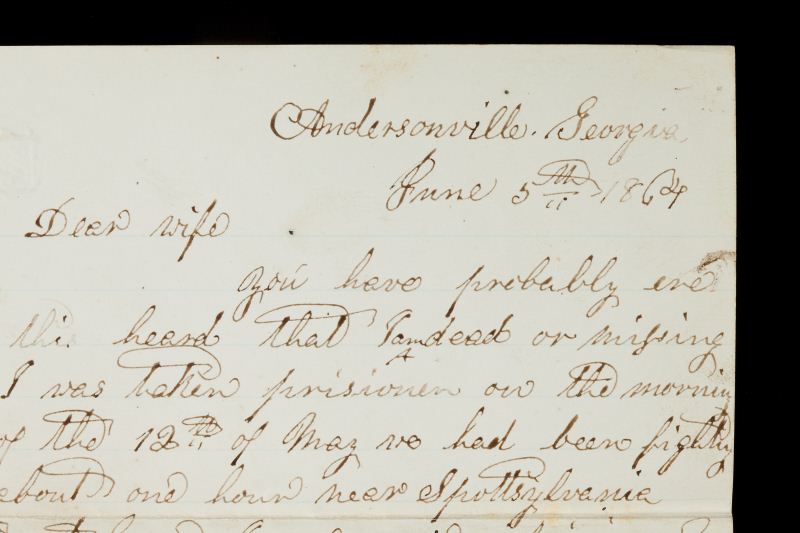 Andersonville. Georgia
June 5th 1864
Dear wife
you have probably ere
this heard that I am dead or missing
I was taken prisioner on the mornin
of the 12th of May we had been fightig
about one hour near Spottsylvania